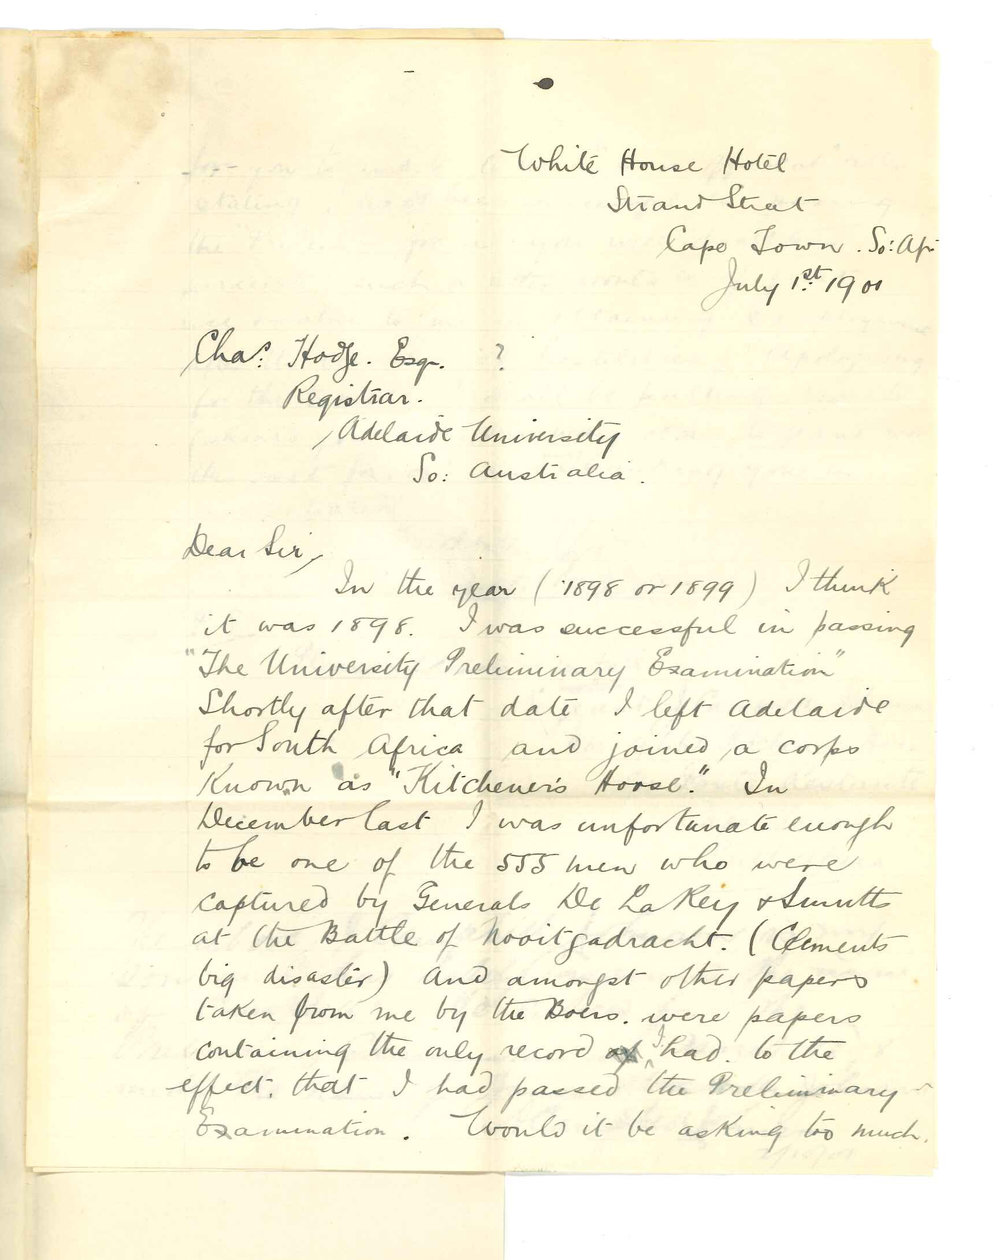 White House Hotel
Strand Street
Cape Town. So: Afr
July 1st 1901
Chas. Hodge. Esqr. ?
Registrar.
Adelaide University
So: Australia.
Dear Sir,
In the year (1898 or 1899) I think
it was 1898. I was successful in passing
"The University Preliminary Examination"
Shortly after that date I left Adelaide
for South Africa and joined a corps
Known as "Kitchener's Horse." In
December last I was unfortunate enough
to be one of the 555 men who were
captured by Generals De La Rey & Smutts
at the Battle of Nooitgadracht. (Clements
big disaster) And amongst other papers
taken from me by the Boers. were papers
containing the only record I had. to the
effect. that I had passed the Preliminary
Examination. Would it be asking too much.